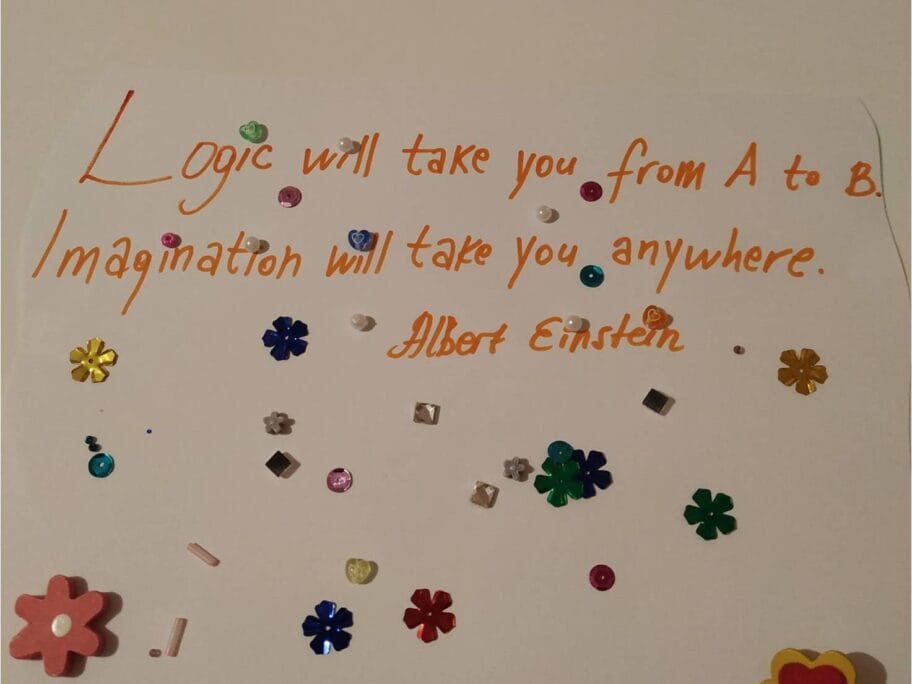 Logic will take you from A to B.
Imagination will take you anywhere.
Albert Einstein